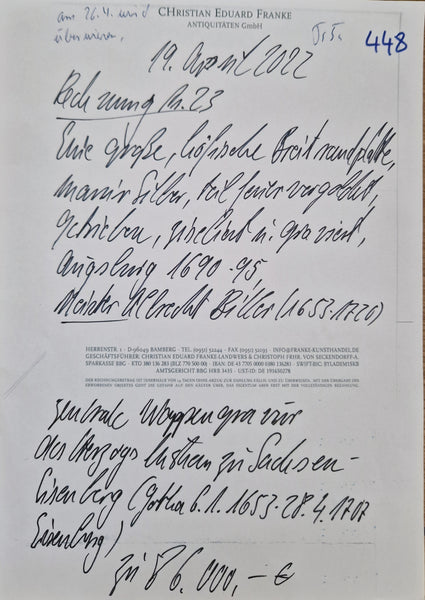 am 26.4. wird
überwiesen,
CHRISTIAN EDUARD FRANKE
ANTIQUITÄTEN GmbH
448
19. April 2022
Rechnung Nr. 23
Eine große, höfische Breitrandplatte,
massiv Silber, teil feuervergoldet,
getrieben, ziseliert u. graviert,
Augsburg 1690-95,
Meister Albrecht Biller (1653-1720)
HERRENSTR. 1 - D-96049 BAMBERG - TEL. (0951) 52244 - FAX (0951) 52193 - INFO@FRANKE-KUNSTHANDEL.DE
GESCHÄFTSFÜHRER: CHRISTIAN EDUARD FRANKE-LANDWERS & CHRISTOPH FRHR. VON SECKENDORFF-A.
SPARKASSE BBG - KTO 380 136 283 (BLZ 770 500 00)
AMTSGERICHT BBG HRB 3435 - UST-ID: DE
zentrale Wappengravur
des Herzogs Christian zu Sachsen-
Eisenberg (Gotha 6.1.1653-28.4.1707
Eisenberg)
zu 86.000,- €